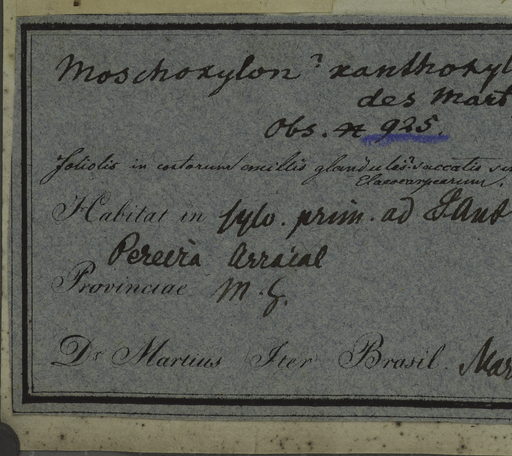 Moschoxylon? xanthoxyl
des Mart
Obs. n 925.
foliolis in costarum axillis glandulis succatis
Elaeocarpearum.
Habitat in sylv. prim. ad S. Ant
Pereira Arraial
Provinciae M. G.
Dr. Martius Iter Brasil. Mar